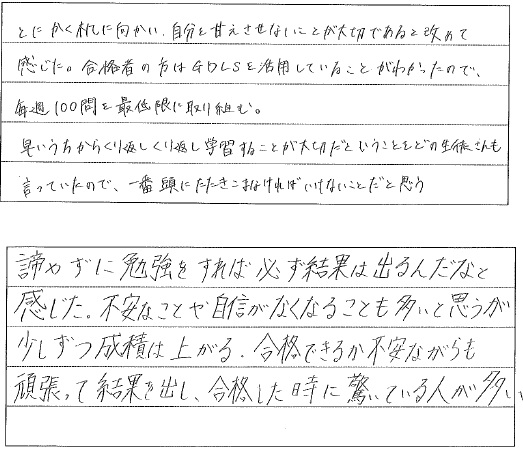 とにかく机に向かい、自分を甘えさせないことが大切であると改めて
感じた。合格者の方はGDLSを活用していることがわかったので、
毎週100問を最低限に取り組む。
早いうちからくり返しくり返し学習することが大切だということをどの生徒さんも
言っていたので、一番頭にたたきこまなければいけないことだと思う
諦めずに勉強をすれば必ず結果は出るんだなと
感じた。不安なことや自信がなくなることも多いと思うが
少しずつ成積は上がる。合格できるか不安ながらも
頑張って結果を出し、合格した時に驚いている人が多い、